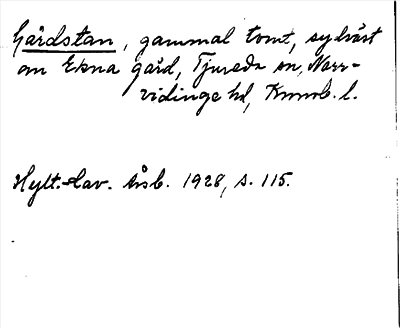 Gårdstan, gammal tomt, sydväst
om Ekna gård, Tjureda sn, Norr-
vidinge hd, Kronob. l.
Hylt.-Cav. årsb. 1928, s. 115.